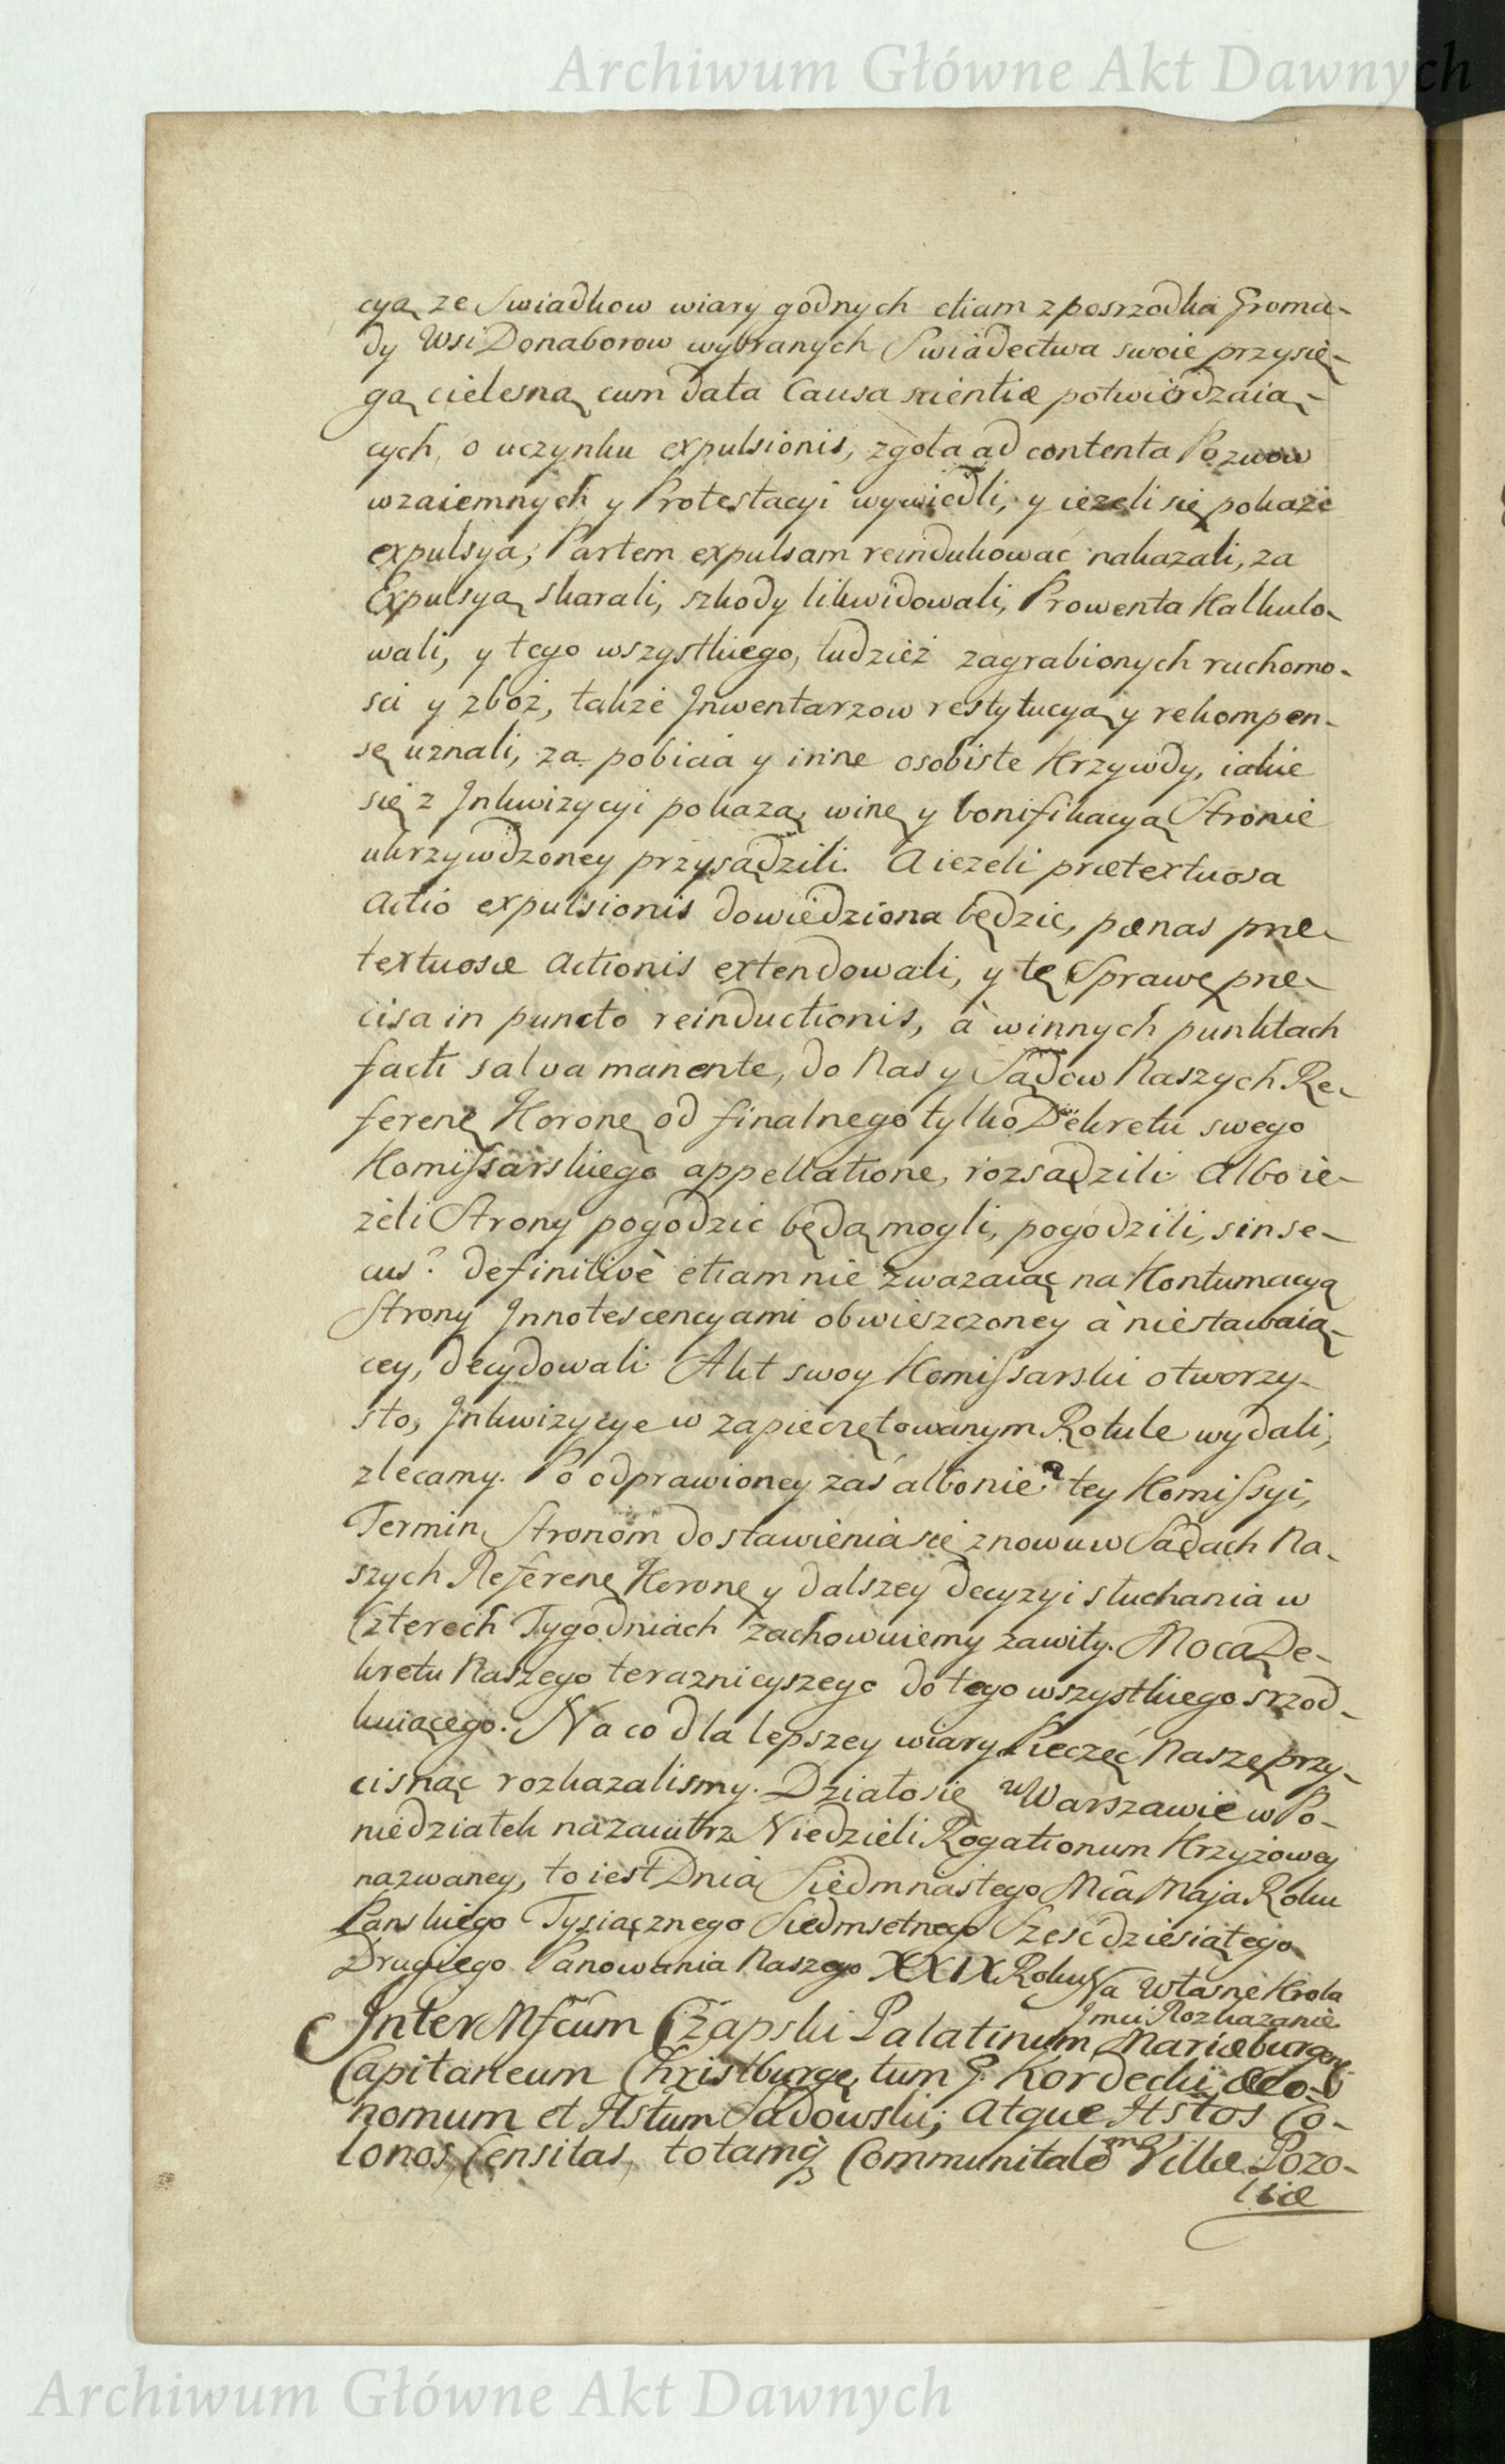 Archiwum Główne Akt Dawnych
cyą ze Swiadkow wiary godnych etiam z posrzodka Groma-
dy Wsi Donaborow wybranych Swiadectwa swoie przysię-
gą cielesną cum data Causa scientiæ potwierdzaią-
cych, o uczynku expulsionis, zgoła ad contenta Pozwow
wzaiemnych y Protestacyi wywiedli, y ieżeli się pokaże
expulsya, Partem expulsam reindukować nakazali, za
Expulsyą skarali, szkody likwidowali, Prowenta Kalkulo-
wali, y tego wszystkiego, tudzież zagrabionych ruchomo-
sci y zboż, także Jnwentarzow restytucyą y rekompen-
sę uznali, za pobicia y inne osobiste Krzywdy, iakie
się z Jnkwizycyi pokażą, winę y bonifikacyą Stronie
ukrzywdzoney przysądzili. A ieżeli prætextuosa
Actio expulsionis dowiedziona będzie, pænas præ-
textuosæ Actionis extendowali, y tę Sprawę præ-
cisa in puncto reinductionis, à w innych punktach
facti salva manente, do Nas y Sądow Naszych Re-
feren Koron od finalnego tylko Dekretu swego
Komissarskiego appellatione, rozsądzili Albo ie-
żeli Strony pogodzic będą mogli, pogodzili, sin se-
cus? definitivè etiam nie zważaiąc na Kontumacyą
Strony Jnnotescencyami obwieszczoney à niestawaią-
cey, decydowali Akt swoy Komissarski otworzy-
sto, Jnkwizycye w zapieczętowanym Rotule wydali,
zlecamy. Po odprawioney zaś albo nie? tey Komissyi,
Termin Stronom do stawienia się znowu w Sądach Na-
szych Referen Koron y dalszey decyzyi słuchania w
Czterech Tygodniach zachowuiemy zawity. Mocą De-
kretu Naszego teraznieyszego do tego wszystkiego srzod-
kuiącego. Na co dla lepszey wiary Pieczęć Naszę przy-
cisnąc rozkazalismy. Działo się w Warszawie w Po-
niedziałek nazaiutrz Niedzieli Rogationum Krzyżowey
nazwaney, to iest Dnia Siedmnastego Mca Maja Roku
Panskiego Tysiącznego Siedmsetnego Sześćdziesiątego
Drugiego Panowania Naszego XXIX Roku Na Własne Krola
Jmci Rozkazanie
Inter Mfcum Czapski Palatinum Mariæburgen
Capitaneum Christburgen tum G. Kordecki Oeco-
nomum et Hstum Sadowski, atque Hstos Co-
lonos, Censitas, totamq Communitatem Villæ Pozo-
liæ
Archiwum Główne Akt Dawnych